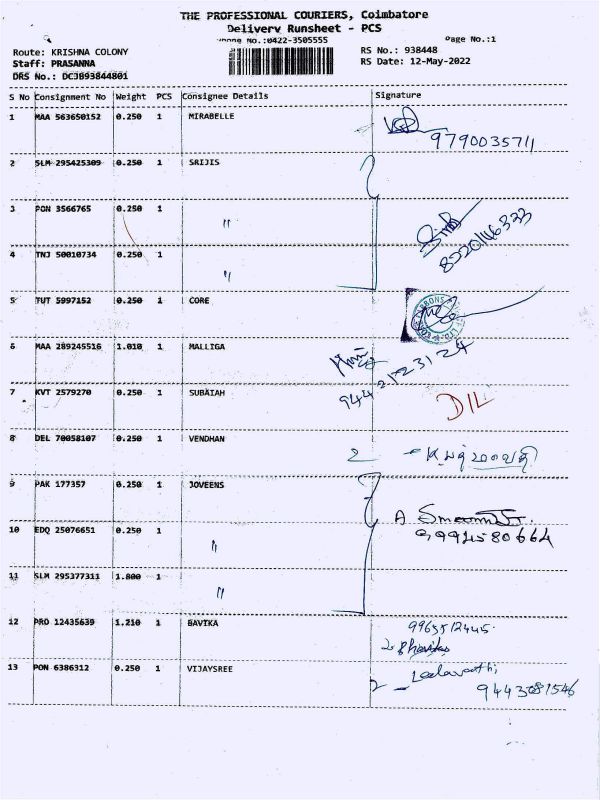 THE PROFESSIONAL COURIERS, Coimbatore
Delivery Runsheet - PCS
Phone No.:0422-3505555
Page No.:1
Route: KRISHNA COLONY
RS No.: 938448
Staff: PRASANNA
RS Date: 12-May-2022
DRS No.: DCJB93844801
S No Consignment No Weight PCS Consignee Details Signature
1 MAA 563650152 0.250 1 MIRABELLE
9790035711
2 SLM 295425309 0.250 1 SRIJIS
3 PON 3566765 0.250 1 "
8220146333
4 TNJ 50010734 0.250 1 "
5 TUT 5997152 0.250 1 CORE
6 MAA 289245516 1.010 1 MALLIGA
9442123124
7 KVT 2579270 0.250 1 SUBAIAH D/L
8 DEL 70058107 0.250 1 VENDHAN
9 PAK 177357 0.250 1 JOVEENS
10 EDQ 25076651 0.250 1 "
9994580664
11 SLM 295377311 1.800 1 "
12 PRO 12435639 1.210 1 BAVIKA 9965512445
Bhavika
13 PON 6386312 0.250 1 VIJAYSREE Leelavathi
9443081546